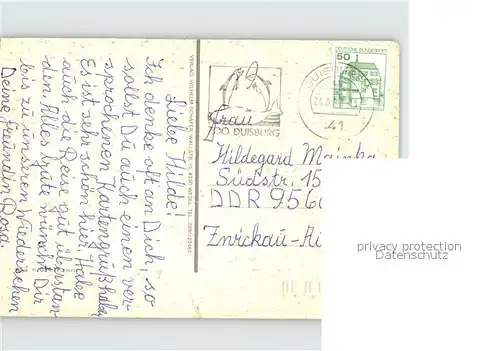 Liebe Hilde!
Ich denke oft an Dich, so
sollst Du auch einen ver-
sprochenen Kartengruß haben
Es ist sehr schön hier. Habe
auch die Reise gut überstan-
den. Alles Gute wünscht Dir
bis zu unseren Wiedersehen
Deine Freundin Rosa.
VERLAG WILHELM SCHÄFER
DEUTSCHE BUNDESPOST
50
DUIS
24.8
41
ZOO DUISBURG
Frau
Hildegard Mainka
Südstr. 15
DDR 9560
Zwickau-
privacy protection
Datenschutz